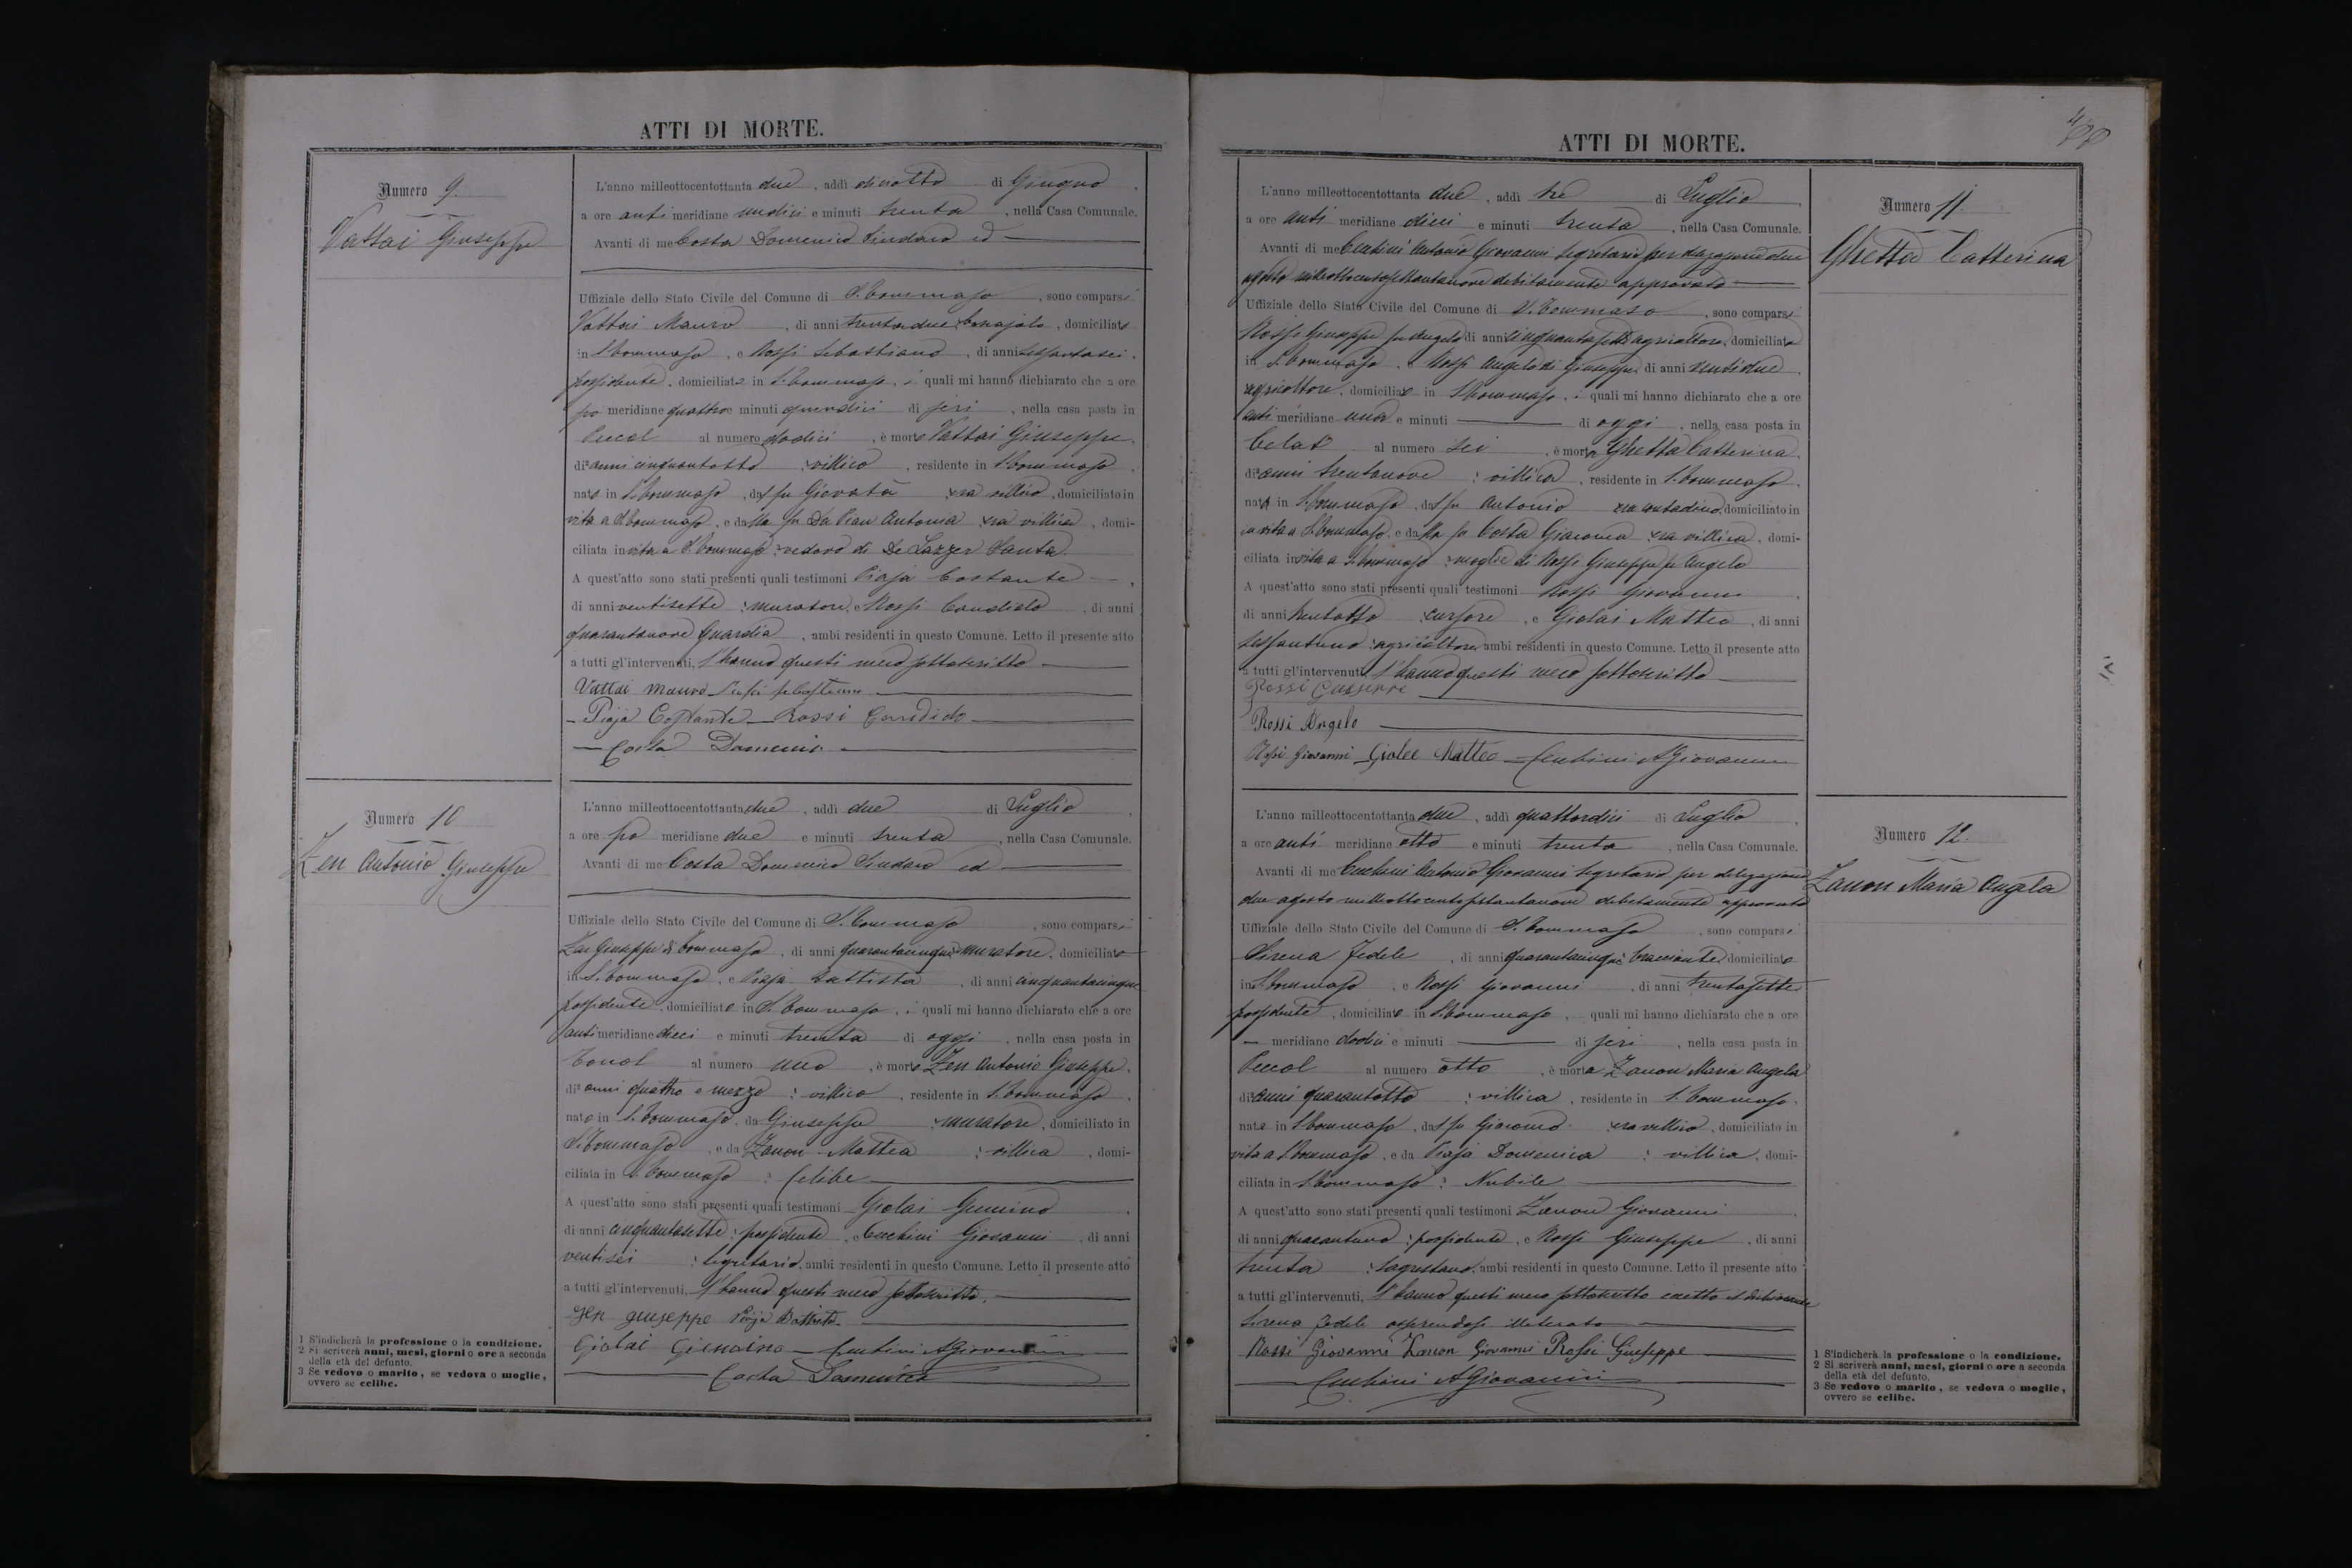 ATTI DI MORTE.
Numero 9.
Vattai Giuseppe
L'anno milleottocentottanta due, addì diciotto di Giugno,
a ore anti meridiane undici e minuti trenta, nella Casa Comunale.
Avanti di me Costa Domenico Sindaco ed
Uffiziale dello Stato Civile del Comune di S. Tommaso, sono comparsi
Vattai Mauro, di anni trentadue, domiciliato
in S. Tommaso, e Rossi Sebastiano, di anni sessantasei,
possidente, domiciliato in S. Tommaso, i quali mi hanno dichiarato che a ore
po meridiane quattro e minuti quindici di jeri, nella casa posta in
Peccol al numero dodici, è morto Vattai Giuseppe,
di anni cinquantotto, villico, residente in S. Tommaso,
nato in S. Tommaso, dal fu Giovatã, era villico, domiciliato in
vita a S. Tommaso, e dalla fu Da Pian Antonia era villica, domi-
ciliata in vita a S. Tommaso, vedovo di De Lazzer Santa
A quest'atto sono stati presenti quali testimoni Piaja Costante,
di anni ventisette, muratore, e Rossi Candido, di anni
quarantanove Guardia, ambi residenti in questo Comune. Letto il presente atto
a tutti gl'intervenuti, l'hanno questi meco sottoscritto
Vattai Mauro Rossi Sebastiano
Piaja Costante Rossi Candido
Costa Domenico
Numero 10
Zen Antonio Giuseppe
L'anno milleottocentottanta due, addì due di Luglio,
a ore po meridiane due e minuti trenta, nella Casa Comunale.
Avanti di me Costa Domenico Sindaco ed
Uffiziale dello Stato Civile del Comune di S. Tommaso, sono comparsi
Zen Giuseppe di Tommaso, di anni quarantacinque muratore, domiciliato
in S. Tommaso, e Piaja Battista, di anni cinquantacinque
possidente, domiciliato in S. Tommaso, i quali mi hanno dichiarato che a ore
anti meridiane dieci e minuti trenta di oggi, nella casa posta in
al numero uno, è morto Zen Antonio Giuseppe,
di anni quattro e mezzo, villico, residente in S. Tommaso,
nato in S. Tommaso, da Giuseppe, muratore, domiciliato in
S. Tommaso, e da Zanon Mattea, villica, domi-
ciliata in S. Tommaso, Celibe
A quest'atto sono stati presenti quali testimoni Giolai
di anni cinquantasette, possidente, e Cecchini Giovanni, di anni
ventisei, segretario, ambi residenti in questo Comune. Letto il presente atto
a tutti gl'intervenuti, l'hanno questi meco sottoscritto.
Zen giuseppe Piaja Battista
Giolai Cecchini A Giovanni
Costa Domenico
1 S'indicherà la professione o la condizione.
2 Si scriverà anni, mesi, giorni o ore a seconda
della età del defunto.
3 Se vedovo o marito, se vedova o moglie,
ovvero se celibe.
ATTI DI MORTE.
Numero 11.
Ghetta Catterina
L'anno milleottocentottanta due, addì tre di Luglio,
a ore anti meridiane dieci e minuti trenta, nella Casa Comunale.
Avanti di me Cecchini Antonio Giovanni segretario per delegazione due
agosto milleottocentosettantanove debitamente approvata
Uffiziale dello Stato Civile del Comune di S. Tommaso, sono comparsi
Rossi Giuseppe fu Angelo di anni cinquantasette agricoltore, domiciliato
in S. Tommaso, e Rossi Angelo di Giuseppe, di anni ventidue,
agricoltore, domiciliato in S. Tommaso, i quali mi hanno dichiarato che a ore
anti meridiane una e minuti di oggi, nella casa posta in
Celat al numero sei, è morta Ghetta Catterina,
di anni trentanove, villica, residente in S. Tommaso,
nata in S. Tommaso, dal fu Antonio era contadino, domiciliato in
in vita a S. Tommaso, e dalla fu Costa Giacoma era villica, domi-
ciliata in vita a S. Tommaso, moglie di Rossi Giuseppe fu Angelo
A quest'atto sono stati presenti quali testimoni Rossi Giovanni,
di anni trentotto, cursore, e Giolai Matteo, di anni
sessantuno, agricoltore, ambi residenti in questo Comune. Letto il presente atto
a tutti gl'intervenuti, l'hanno questi meco sottoscritto
Rossi Giuseppe
Rossi Angelo
Rossi Giovanni Matteo Cecchini A Giovanni
Numero 12.
Zanon Maria Angela
L'anno milleottocentottanta due, addì quattordici di Luglio,
a ore anti meridiane otto e minuti trenta, nella Casa Comunale.
Avanti di me Cecchini Antonio Giovanni segretario per delegazione
due agosto milleottocentosettantanove debitamente approvata
Uffiziale dello Stato Civile del Comune di S. Tommaso, sono comparsi
Sirena Fedele, di anni quarantacinque bracciante, domiciliato
in S. Tommaso, e Rossi Giovanni, di anni trentasette
possidente, domiciliato in S. Tommaso, quali mi hanno dichiarato che a ore
meridiane dodici e minuti di jeri, nella casa posta in
Peccol al numero otto, è morta Zanon Maria Angela
di anni quarantotto, villica, residente in S. Tommaso,
nata in S. Tommaso, dal fu Giacomo era villico, domiciliato in
vita a S. Tommaso, e da Piaja Domenica, villica, domi-
ciliata in S. Tommaso, Nubile
A quest'atto sono stati presenti quali testimoni Zanon Giovanni,
di anni quarantuno, possidente, e Rossi Giuseppe, di anni
trenta, sagrestano, ambi residenti in questo Comune. Letto il presente atto
a tutti gl'intervenuti, l'hanno questi meco sottoscritto eccetto il dichiarante
Sirena Fedele essendo illetterato
Rossi Giovanni Zanon Giovanni Rossi Giuseppe
Cecchini A Giovanni
1 S'indicherà la professione o la condizione.
2 Si scriverà anni, mesi, giorni o ore a seconda
della età del defunto.
3 Se vedovo o marito, se vedova o moglie,
ovvero se celibe.